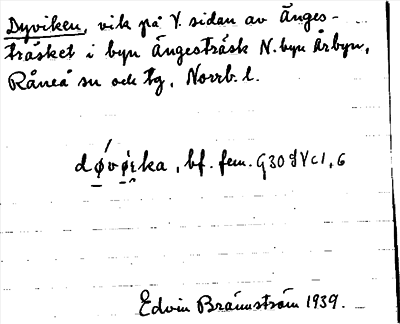 Dyviken, vik på V. sidan av Änges-
träsket i byn Ängesträsk N. byn Årbyn,
Råneå sn och tg, Norrb. l.
døvøɩka, bf. fem. G30 d V c 1, 6
Edvin Brännström 1939.